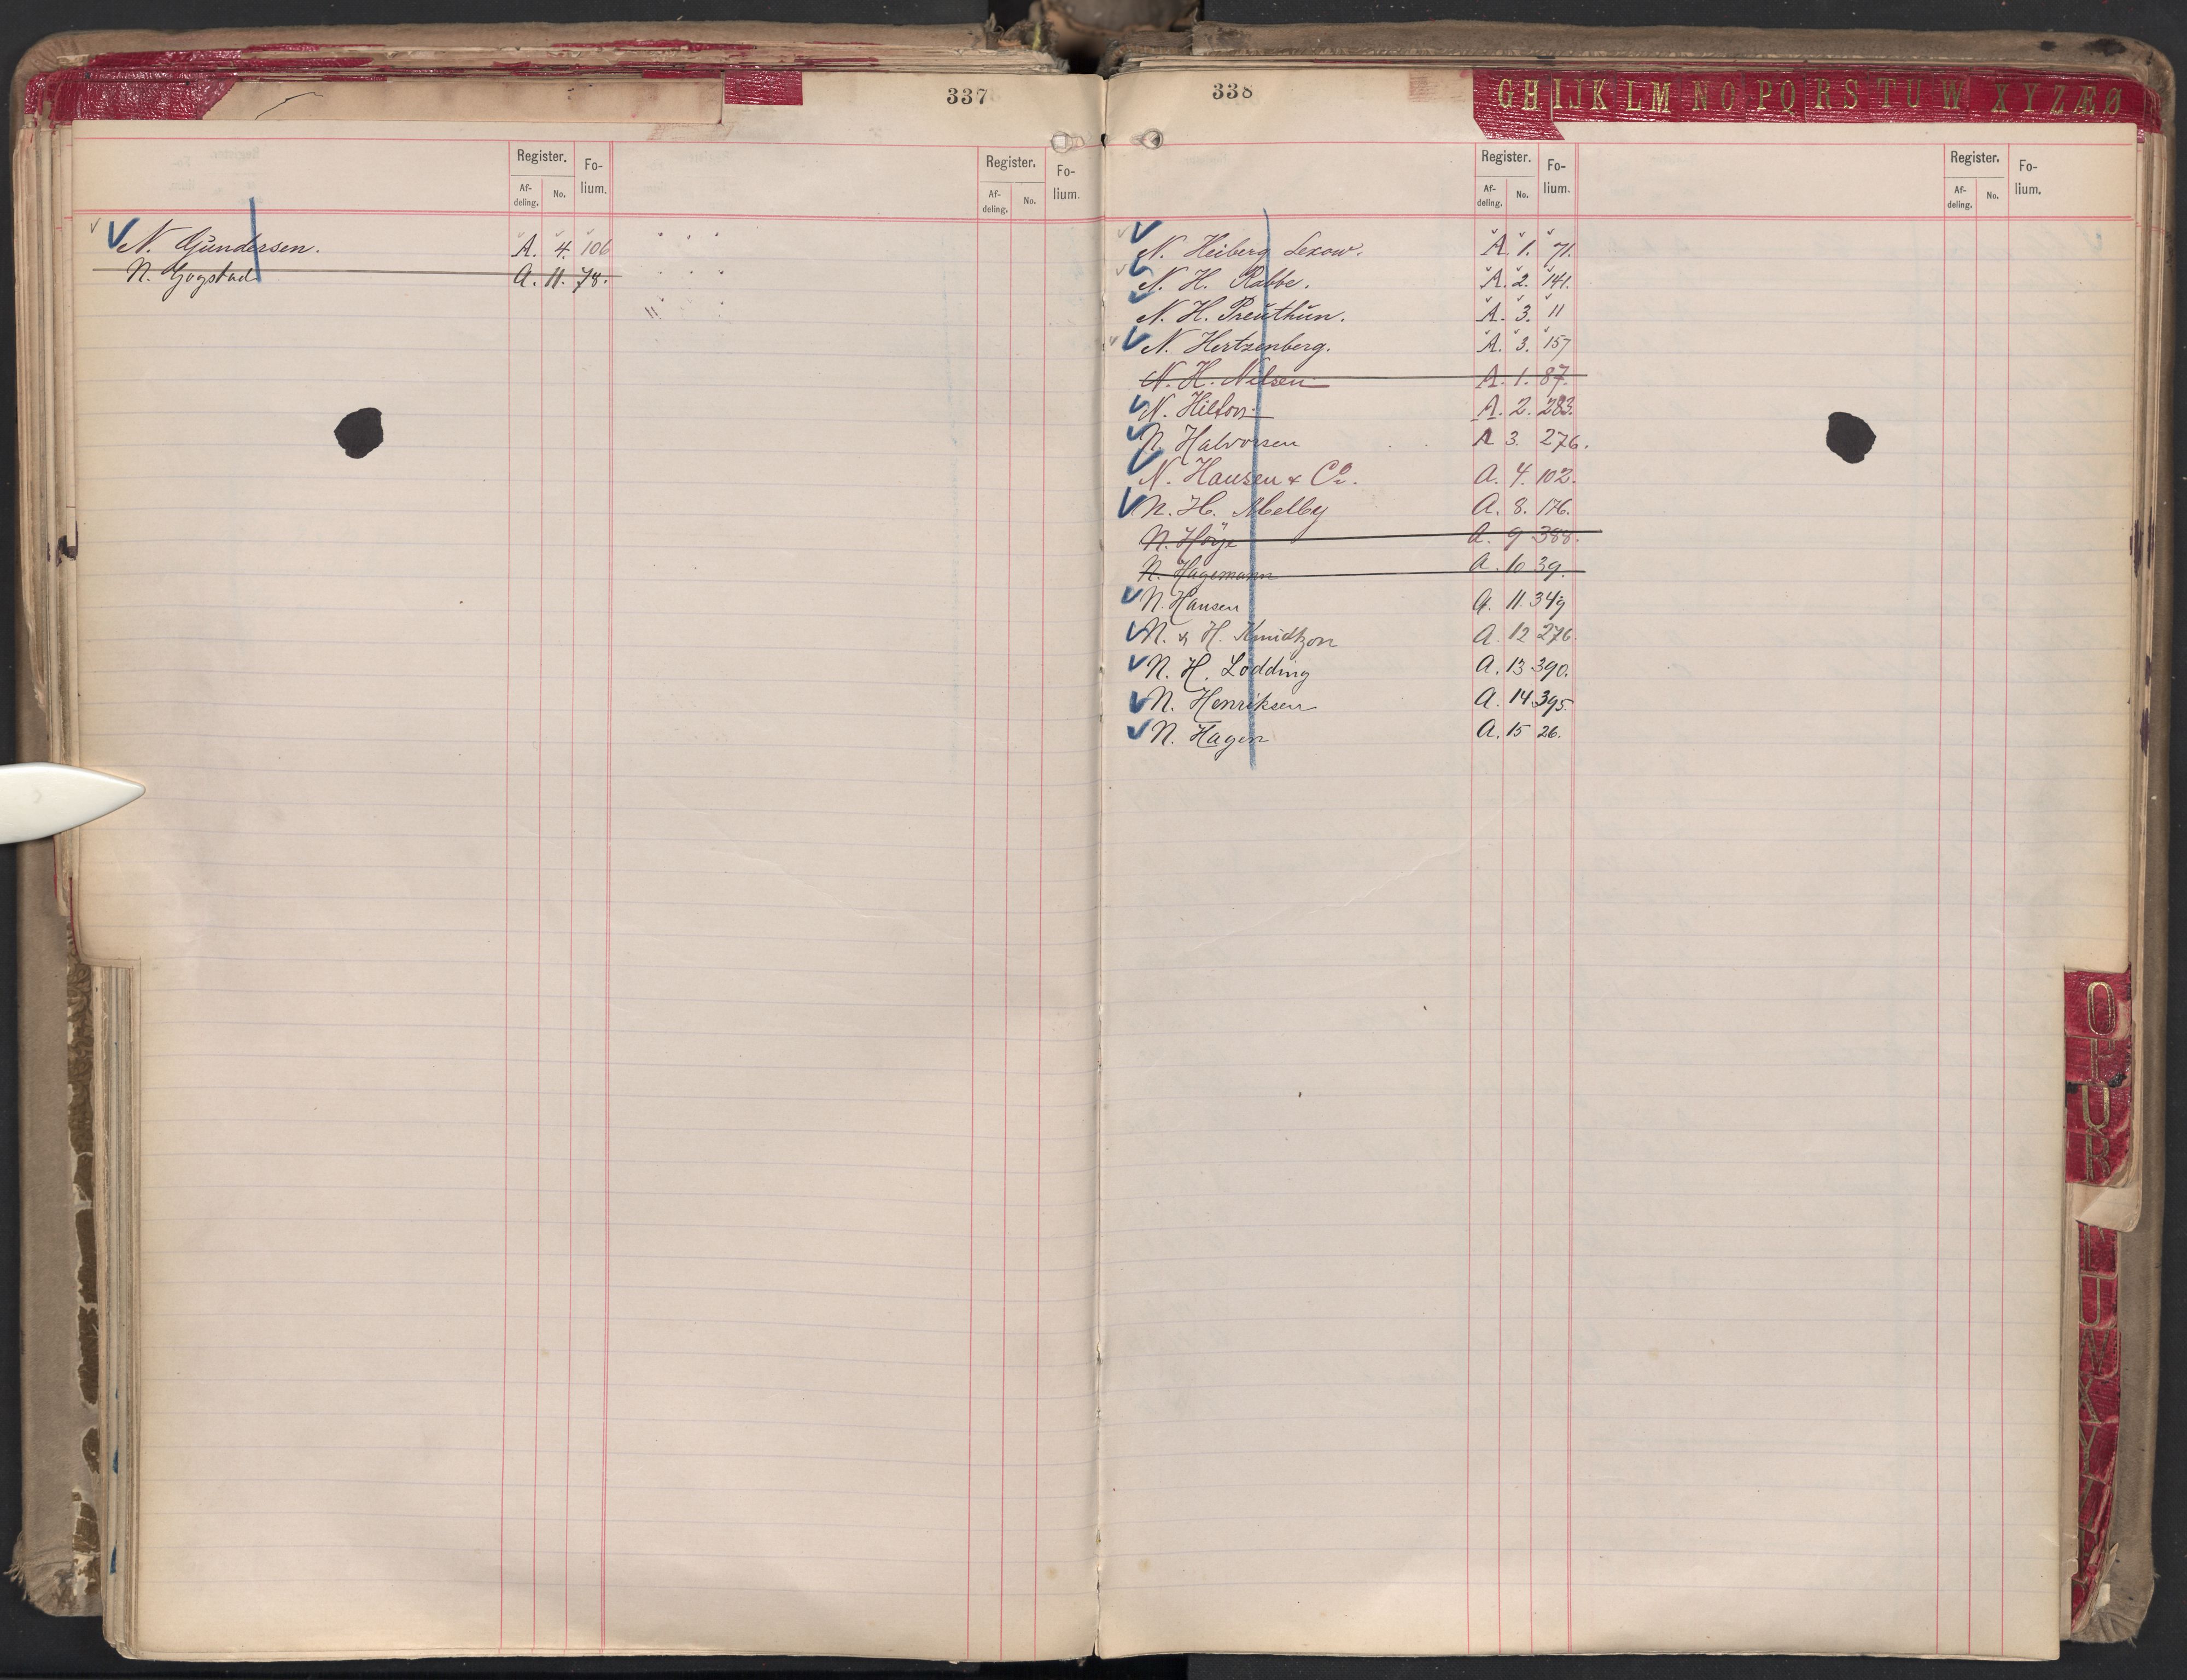 337
Register. Fo-
lium.
Af-
deling. No.
Register. Fo-
lium.
Af-
deling. No.
N. Gundersen. A. 4. 106
N. Gogstad A. 11. 78.
338
G H I J K L M N O P Q R S T U W X Y Z Æ Ø
Register. Fo-
lium.
Af-
deling. No.
Register. Fo-
lium.
Af-
deling. No.
N. Heiberg Lexow. A. 1. 71.
N. H. Rabbe. A. 2. 141.
N. H. Preuthun. A. 3. 11
N. Hertzenberg. A. 3. 157
N. H. Nilsen A. 1. 87.
N. Hilton A. 2. 283.
N. Halvorsen A 3. 276.
N. Hansen & Co. A. 4. 102.
N. H. Melby A. 8. 176.
N. Höye A. 9 388.
N. Hagemann A. 10 39.
N. Hansen A. 11. 349
N. & H. Knudtzon A. 12 276.
N. H. Lodding A. 13 390.
N. Henriksen A. 14 395.
N. Hagen A. 15 26.
O
P
Q
R
U
W
X
Y